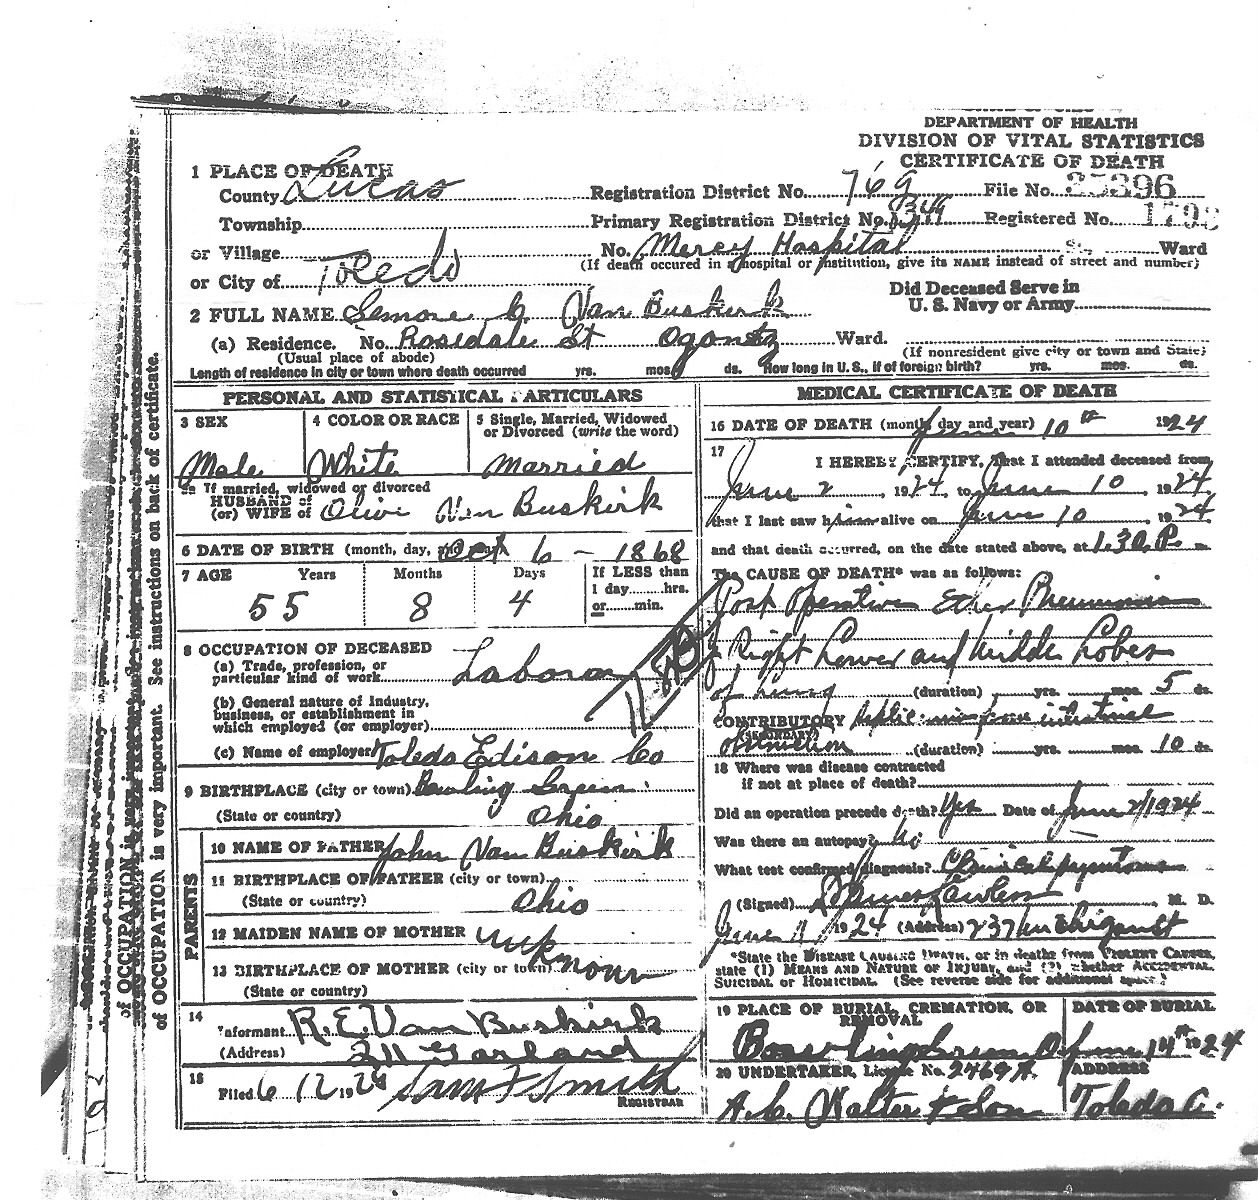 DEPARTMENT OF HEALTH
DIVISION OF VITAL STATISTICS
CERTIFICATE OF DEATH
1 PLACE OF DEATH
County Lucas Registration District No. 769 File No. 35396
Township Primary Registration District No. Registered No. 1792
or Village No. Mercy Hospital St. Ward
(If death occured in a hospital or institution, give its NAME instead of street and number)
or City of Toledo
Did Deceased Serve in
U. S. Navy or Army
2 FULL NAME Van Buskirk
(a) Residence. No. Rosedale St Ogontz Ward.
(Usual place of abode) (If nonresident give city or town and State)
Length of residence in city or town where death occurred yrs. mos. ds. How long in U. S., if of foreign birth? yrs. mos. ds.
PERSONAL AND STATISTICAL PARTICULARS
3 SEX 4 COLOR OR RACE 5 Single, Married, Widowed
or Divorced (write the word)
Male White Married
5a If married, widowed or divorced
HUSBAND of
(or) WIFE of Olive Van Buskirk
6 DATE OF BIRTH (month, day, and year) Oct 6 - 1868
7 AGE Years Months Days If LESS than
1 day hrs.
or min.
55 8 4
8 OCCUPATION OF DECEASED
(a) Trade, profession, or
particular kind of work Laboror
(b) General nature of Industry,
business, or establishment in
which employed (or employer)
(c) Name of employer Toledo Edison Co
9 BIRTHPLACE (city or town) Bowling Green
(State or country) Ohio
PARENTS
10 NAME OF FATHER John Van Buskirk
11 BIRTHPLACE OF FATHER (city or town)
(State or country) Ohio
12 MAIDEN NAME OF MOTHER unknown
13 BIRTHPLACE OF MOTHER (city or town)
(State or country)
14
Informant R.E. Van Buskirk
(Address) 211 Garland
15
Filed 6 12 1924 Sam F Smith
REGISTRAR
MEDICAL CERTIFICATE OF DEATH
16 DATE OF DEATH (month, day and year) June 10th 1924
17 I HEREBY CERTIFY, That I attended deceased from
June 2, 1924, to June 10, 1924
that I last saw him alive on June 10, 1924
and that death occurred, on the date stated above, at 1.30 P. m.
The CAUSE OF DEATH* was as follows:
Post Operative Ether Pneumonia
of Right Lower and Middle Lobes
of Lung (duration) yrs. mos. 5 ds.
CONTRIBUTORY from intestinal
(SECONDARY)
obstruction (duration) yrs. mos. 10 ds.
18 Where was disease contracted
if not at place of death?
Did an operation precede death? Yes Date of June 2/1924
Was there an autopsy? No
What test confirmed diagnosis? Clinical symptoms
(Signed) M. D.
June 11, 1924 (Address) 237 Michigan St
*State the DISEASE CAUSING DEATH, or in deaths from VIOLENT CAUSES,
state (1) MEANS AND NATURE OF INJURY, and (2) whether ACCIDENTAL,
SUICIDAL or HOMICIDAL. (See reverse side for additional space.)
19 PLACE OF BURIAL, CREMATION, OR
REMOVAL
DATE OF BURIAL
Bowling Green O. June 14th 1924
20 UNDERTAKER, License No. 2469A ADDRESS
A.C. Walter & Son Toledo O.
of OCCUPATION is very important. See instructions on back of certificate.